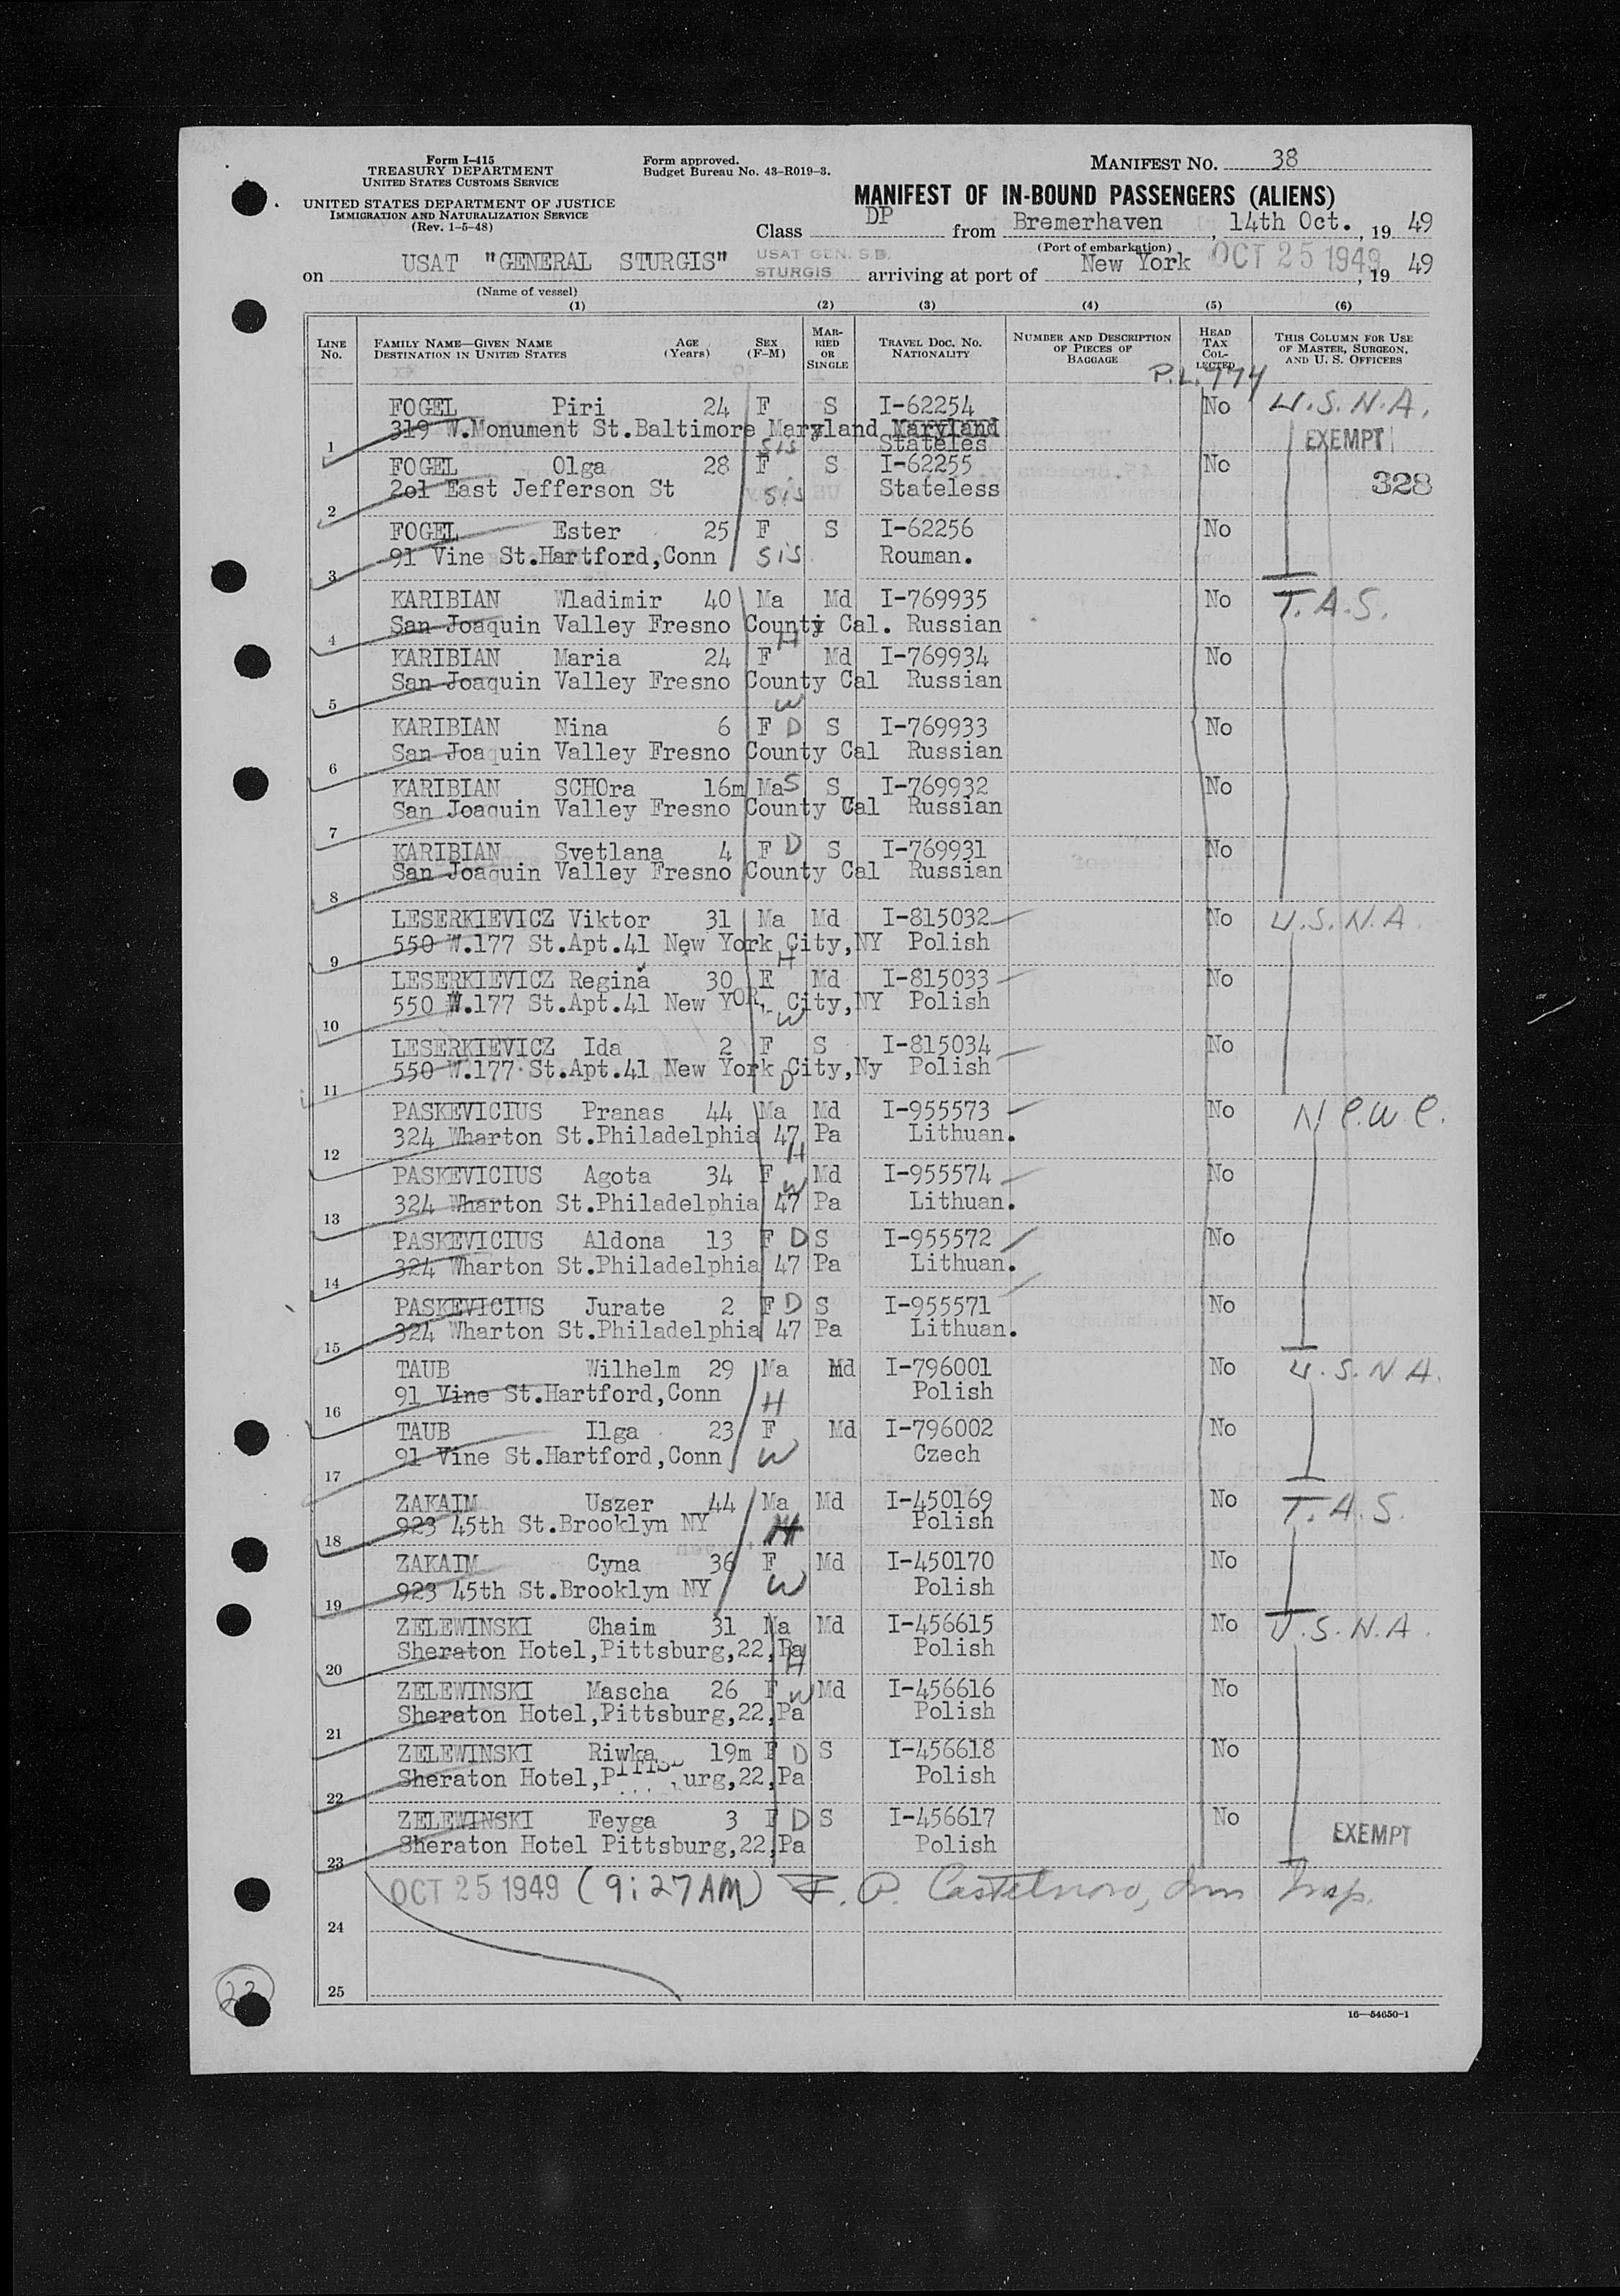 Form I-415
TREASURY DEPARTMENT
UNITED STATES CUSTOMS SERVICE
UNITED STATES DEPARTMENT OF JUSTICE
IMMIGRATION AND NATURALIZATION SERVICE
(Rev. 1-5-48)
Form approved.
Budget Bureau No. 43-R019-3.
MANIFEST NO. 38
MANIFEST OF IN-BOUND PASSENGERS (ALIENS)
Class DP from Bremerhaven, 14th Oct., 19 49
(Port of embarkation)
on USAT "GENERAL STURGIS" USAT GEN. S.D. STURGIS arriving at port of New York OCT 25 1949, 19 49
(Name of vessel)
(1) (2) (3) (4) (5) (6)
LINE No. FAMILY NAME—GIVEN NAME DESTINATION IN UNITED STATES AGE (Years) SEX (F-M) MARRIED OR SINGLE TRAVEL DOC. NO. NATIONALITY NUMBER AND DESCRIPTION OF PIECES OF BAGGAGE HEAD TAX COLLECTED THIS COLUMN FOR USE OF MASTER, SURGEON, AND U. S. OFFICERS
P.L. 774
FOGEL Piri 24 F S I-62254 No U.S.N.A.
1 319 W.Monument St.Baltimore Maryland Maryland Sis Stateles EXEMPT
FOGEL Olga 28 F S I-62255 No 328
2 2ol East Jefferson St Sis Stateless
FOGEL Ester 25 F S I-62256 No
3 91 Vine St.Hartford,Conn Sis Rouman.
KARIBIAN Wladimir 40 Ma Md I-769935 No T.A.S.
4 San Joaquin Valley Fresno County Cal. Russian H
KARIBIAN Maria 24 F Md I-769934 No
5 San Joaquin Valley Fresno County Cal Russian W
KARIBIAN Nina 6 F D S I-769933 No
6 San Joaquin Valley Fresno County Cal Russian
KARIBIAN SCHOra 16m Ma S S I-769932 No
7 San Joaquin Valley Fresno County Cal Russian
KARIBIAN Svetlana 4 F D S I-769931 No
8 San Joaquin Valley Fresno County Cal Russian
LESERKIEVICZ Viktor 31 Ma Md I-815032 No U.S.N.A.
9 550 W.177 St.Apt.41 New York City,NY Polish H
LESERKIEVICZ Regina 30 F Md I-815033 No
10 550 W.177 St.Apt.41 New YOR City,NY Polish W
LESERKIEVICZ Ida 2 F S I-815034 No
11 550 W.177 St.Apt.41 New York City,Ny Polish D
PASKEVICIUS Pranas 44 Ma Md I-955573 No N.C.W.C.
12 324 Wharton St.Philadelphia 47 Pa Lithuan. H
PASKEVICIUS Agota 34 F W Md I-955574 No
13 324 Wharton St.Philadelphia 47 Pa Lithuan.
PASKEVICIUS Aldona 13 F D S I-955572 No
14 324 Wharton St.Philadelphia 47 Pa Lithuan.
PASKEVICIUS Jurate 2 F D S I-955571 No
15 324 Wharton St.Philadelphia 47 Pa Lithuan.
TAUB Wilhelm 29 Ma Md I-796001 No U.S.N.A.
16 91 Vine St.Hartford,Conn H Polish
TAUB Ilga 23 F Md I-796002 No
17 91 Vine St.Hartford,Conn W Czech
ZAKAIM Uszer 44 Ma Md I-450169 No T.A.S.
18 923 45th St.Brooklyn NY H Polish
ZAKAIM Cyna 36 F Md I-450170 No
19 923 45th St.Brooklyn NY W Polish
ZELEWINSKI Chaim 31 Ma Md I-456615 No U.S.N.A.
20 Sheraton Hotel,Pittsburg,22,Pa H Polish
ZELEWINSKI Mascha 26 F W Md I-456616 No
21 Sheraton Hotel,Pittsburg,22,Pa Polish
ZELEWINSKI Riwka 19m F D S I-456618 No
22 Sheraton Hotel,Pittsburg,22,Pa Polish
ZELEWINSKI Feyga 3 F D S I-456617 No
23 Sheraton Hotel Pittsburg,22,Pa Polish EXEMPT
OCT 25 1949 (9:27AM) F. P. Castelnovo, Imm Insp.
24
25
23
16—54650-1